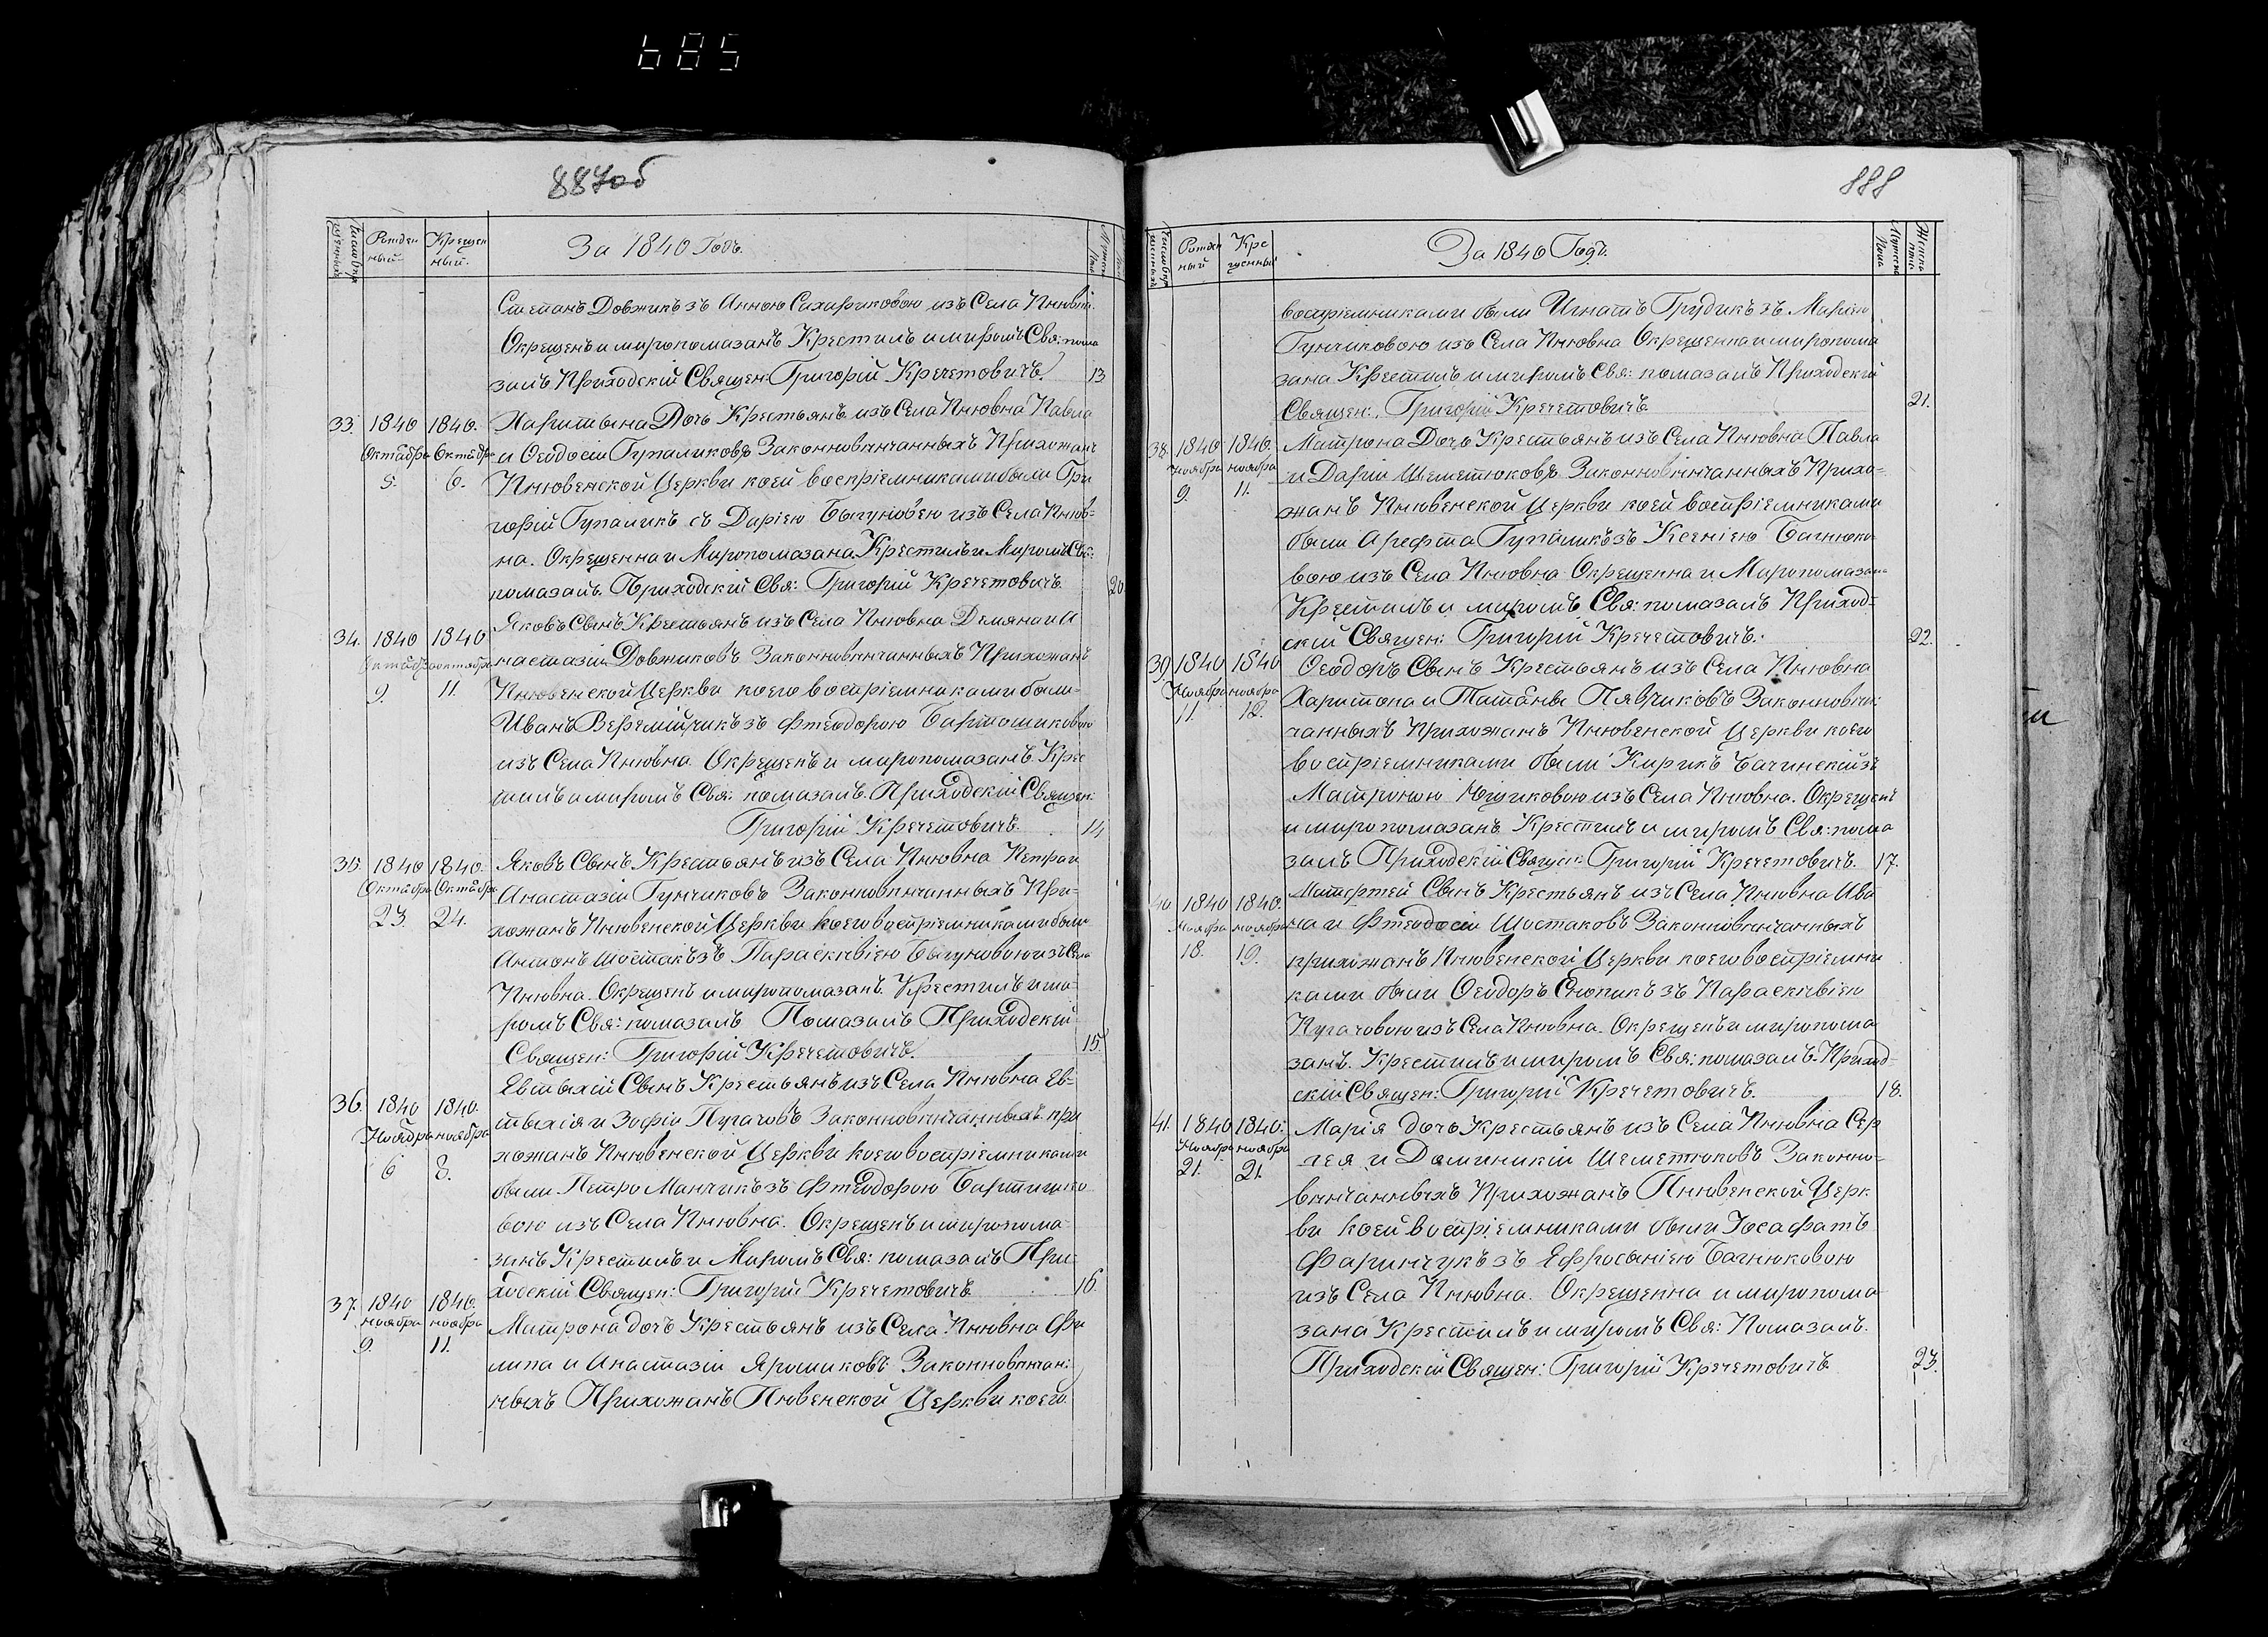 685
887об
Число окрещенныхъ
Рожденный
Крещенный.
За 1840 Годъ.
Степанъ Довжикъ зъ Анною Сахариковою изъ Села Пнювна.
Окрещенъ и миропомазанъ Крестилъ и миромъ Свя: пома
залъ Приходскій Священ: Григорій Кречетовичъ. 13
33. 1840 1840. Харитына Дочь Крестьянъ изъ Села Пнювна Павла
Октября Октября и Феодосіи Гупаликовъ Законновѣнчанныхъ Прихожанъ
5. 6. Пнювенской Церкви коей воспріемниками были Гри
горій Гупаликъ съ Даріею Бегуновею изъ Села Пнюв-
на. Окрещенна и Миропомазана Крестилъ и Миромъ Свя:
помазалъ Приходскій Свя: Григорій Кречетовичъ 20
Яковъ Сынъ Крестьянъ изъ Села Пнювна Демяна и А
34. 1840 1840
Октября октября настазіи Довжиковъ Законновѣнчанныхъ Прихожанъ
9. 11. Пнювенской Церкви коего воспріемниками были
Иванъ Веремійчикъ зъ Фтеодорою Бартошиковою
изъ Села Пнювна Окрещенъ и миропомазанъ. Крес
тилъ и миромъ Свя: помазалъ. Приходскій Священ:
Григорій Кречетовичъ. 14
35. 1840 1840. Яковъ Сынъ Крестьянъ изъ Села Пнювна Петра и
Октября Октября Анастазіи Гунчиковъ Законновѣнчанныхъ При-
23. 24. хожанъ Пнювенской Церкви коего воспріемниками были
Антонъ Шостакъ зъ Параскивіею Бегуновою изъ Села
Пнювна. Окрещенъ и миропомазанъ. Крестилъ и ми-
ромъ Свя: помазалъ Помазалъ Приходскій
Священ: Григорій Кречетовичъ. 15.
Евтыхій Сынъ Крестьянъ изъ Села Пнювна Ев-
36. 1840 1840.
Ноября ноября тыхія и Зофіи Пугачовъ Законновѣнчанныхъ при
6 8. хожанъ Пнювенской Церкви коего воспріемниками
были Петро Манчикъ зъ Фтеодорою Бартошико
вою изъ Села Пнювна. Окрещенъ и миропома
занъ Крестилъ и Миромъ Свя: помазалъ При-
ходскій Священ: Григорій Кречетовичъ 16.
37. 1840 1840.
ноября ноября Матрона дочь Крестьянъ изъ Села Пнювна Фи
9. 11.
липа и Анастазіи Ярошиковъ Законновѣнчан:
ныхъ Прихожанъ Пнювенской Церкви коего
888
Рожденный
Крещенный
За 1840 Годъ.
Мужеска Пола
Женска
воспріемниками были Игнатъ Грудикъ зъ Маріею
Гунчиковою изъ Села Пнювна Окрещенна и миропома
зана Крестилъ и миромъ Свя: помазалъ Приходскій
Священ: Григорій Кречетовичъ 21.
38. 1840 1840. Матрона Дочь Крестьянъ изъ Села Пнювна Павла
Ноября ноября и Даріи Шеметюковъ Законновѣнчанныхъ Прихо-
9. 11. жанъ Пнювенской Церкви коей воспріемниками
были Арефта Гупаликъ зъ Ксеніею Багнюко-
вою изъ Села Пнювна Окрещенна и Миропомазана
Крестилъ и миромъ Свя: помазалъ Приход-
скій Священ: Григорій Кречетовичъ. 22.
39. 1840 1840 Феодоръ Сынъ Крестьянъ изъ Села Пнювна
Ноября ноября Харитона и Татяны Пявчиковъ Законновѣн-
11. 12. чанныхъ Прихожанъ Пнювенской Церкви коего
воспріемниками были Кирикъ Бачинскій зъ
Матроною Ющиковою изъ Села Пнювна. Окрещенъ
и миропомазанъ Крестилъ и миромъ Свя: пома
залъ Приходскій Священ: Григорій Кречетовичъ. 17.
40. 1840 1840. Матфтей Сынъ Крестьянъ изъ Села Пнювна Ива
Ноября ноября на и Фтеодосіи Шостаковъ Законновѣнчанныхъ
18. 19. прихожанъ Пнювенской Церкви коего воспріемни
ками были Феодоръ Сюпикъ зъ Параскивіею
Пугачовою изъ Села Пнювна. Окрещенъ и миропома
занъ. Крестилъ и миромъ Свя: помазалъ. Приход-
скій Священ: Григорій Кречетовичъ. 18.
41. 1840 1840. Марія дочь Крестьянъ изъ Села Пнювна Сер
Ноября ноября гея и Доминикіи Шеметюковъ Законно-
21. 21. вѣнчанныхъ Прихожанъ Пнювенской Церк
ви коей воспріемниками были Іосафатъ
Фаринчукъ зъ Ефросыніею Багнюковою
изъ Села Пнювна. Окрещенна и миропома
зана Крестилъ и миромъ Свя: Помазалъ.
Приходскій Священ: Григорій Кречетовичъ 23.